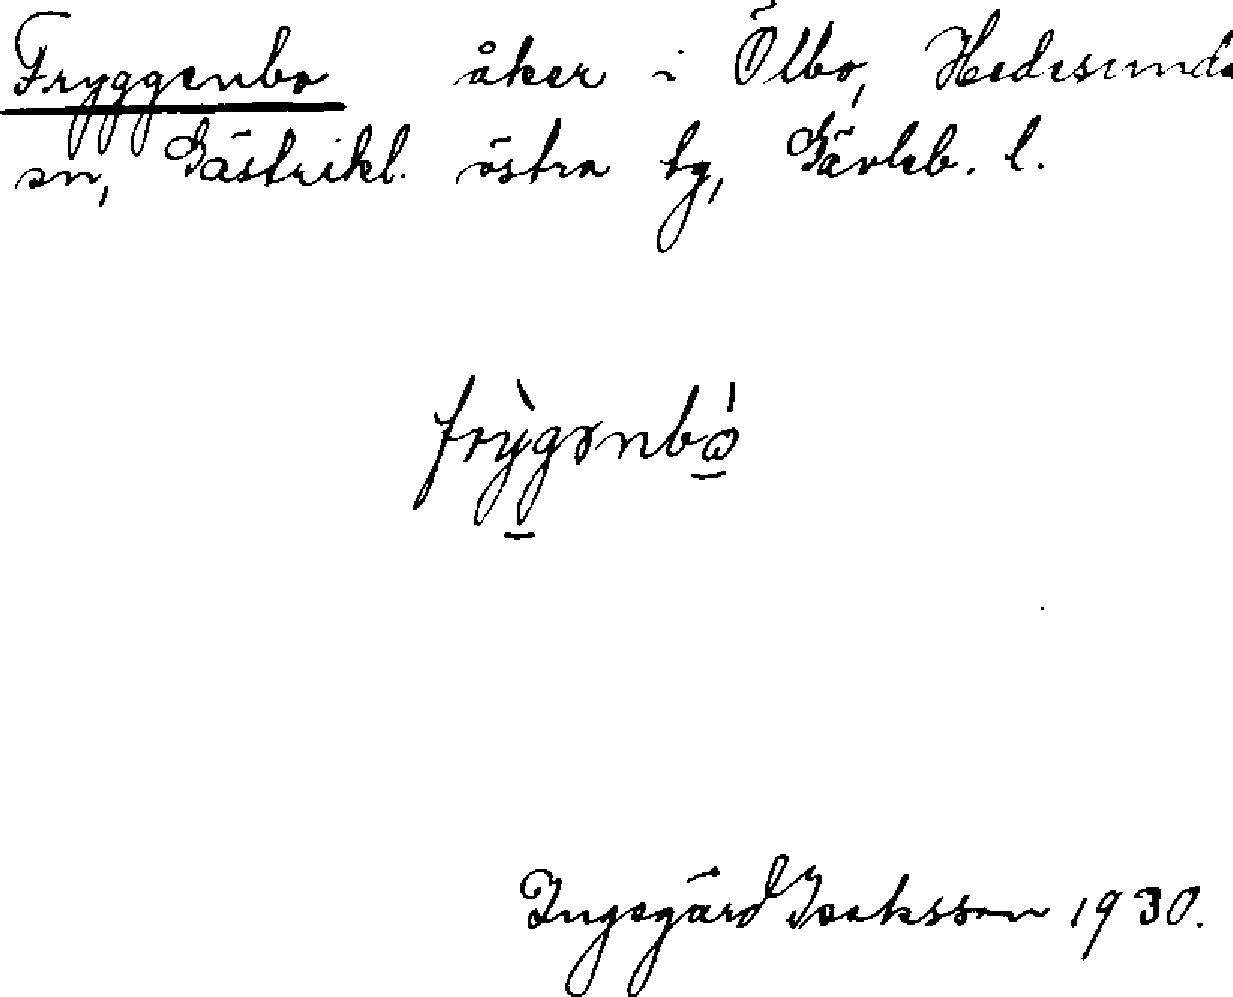 Fryggenbo åker i Ölbo, Hedesunda
sn, Gästrikl. östra tg, Gävleb. l.
frỳgənbó̱
Ingegärd Isaksson 1930.